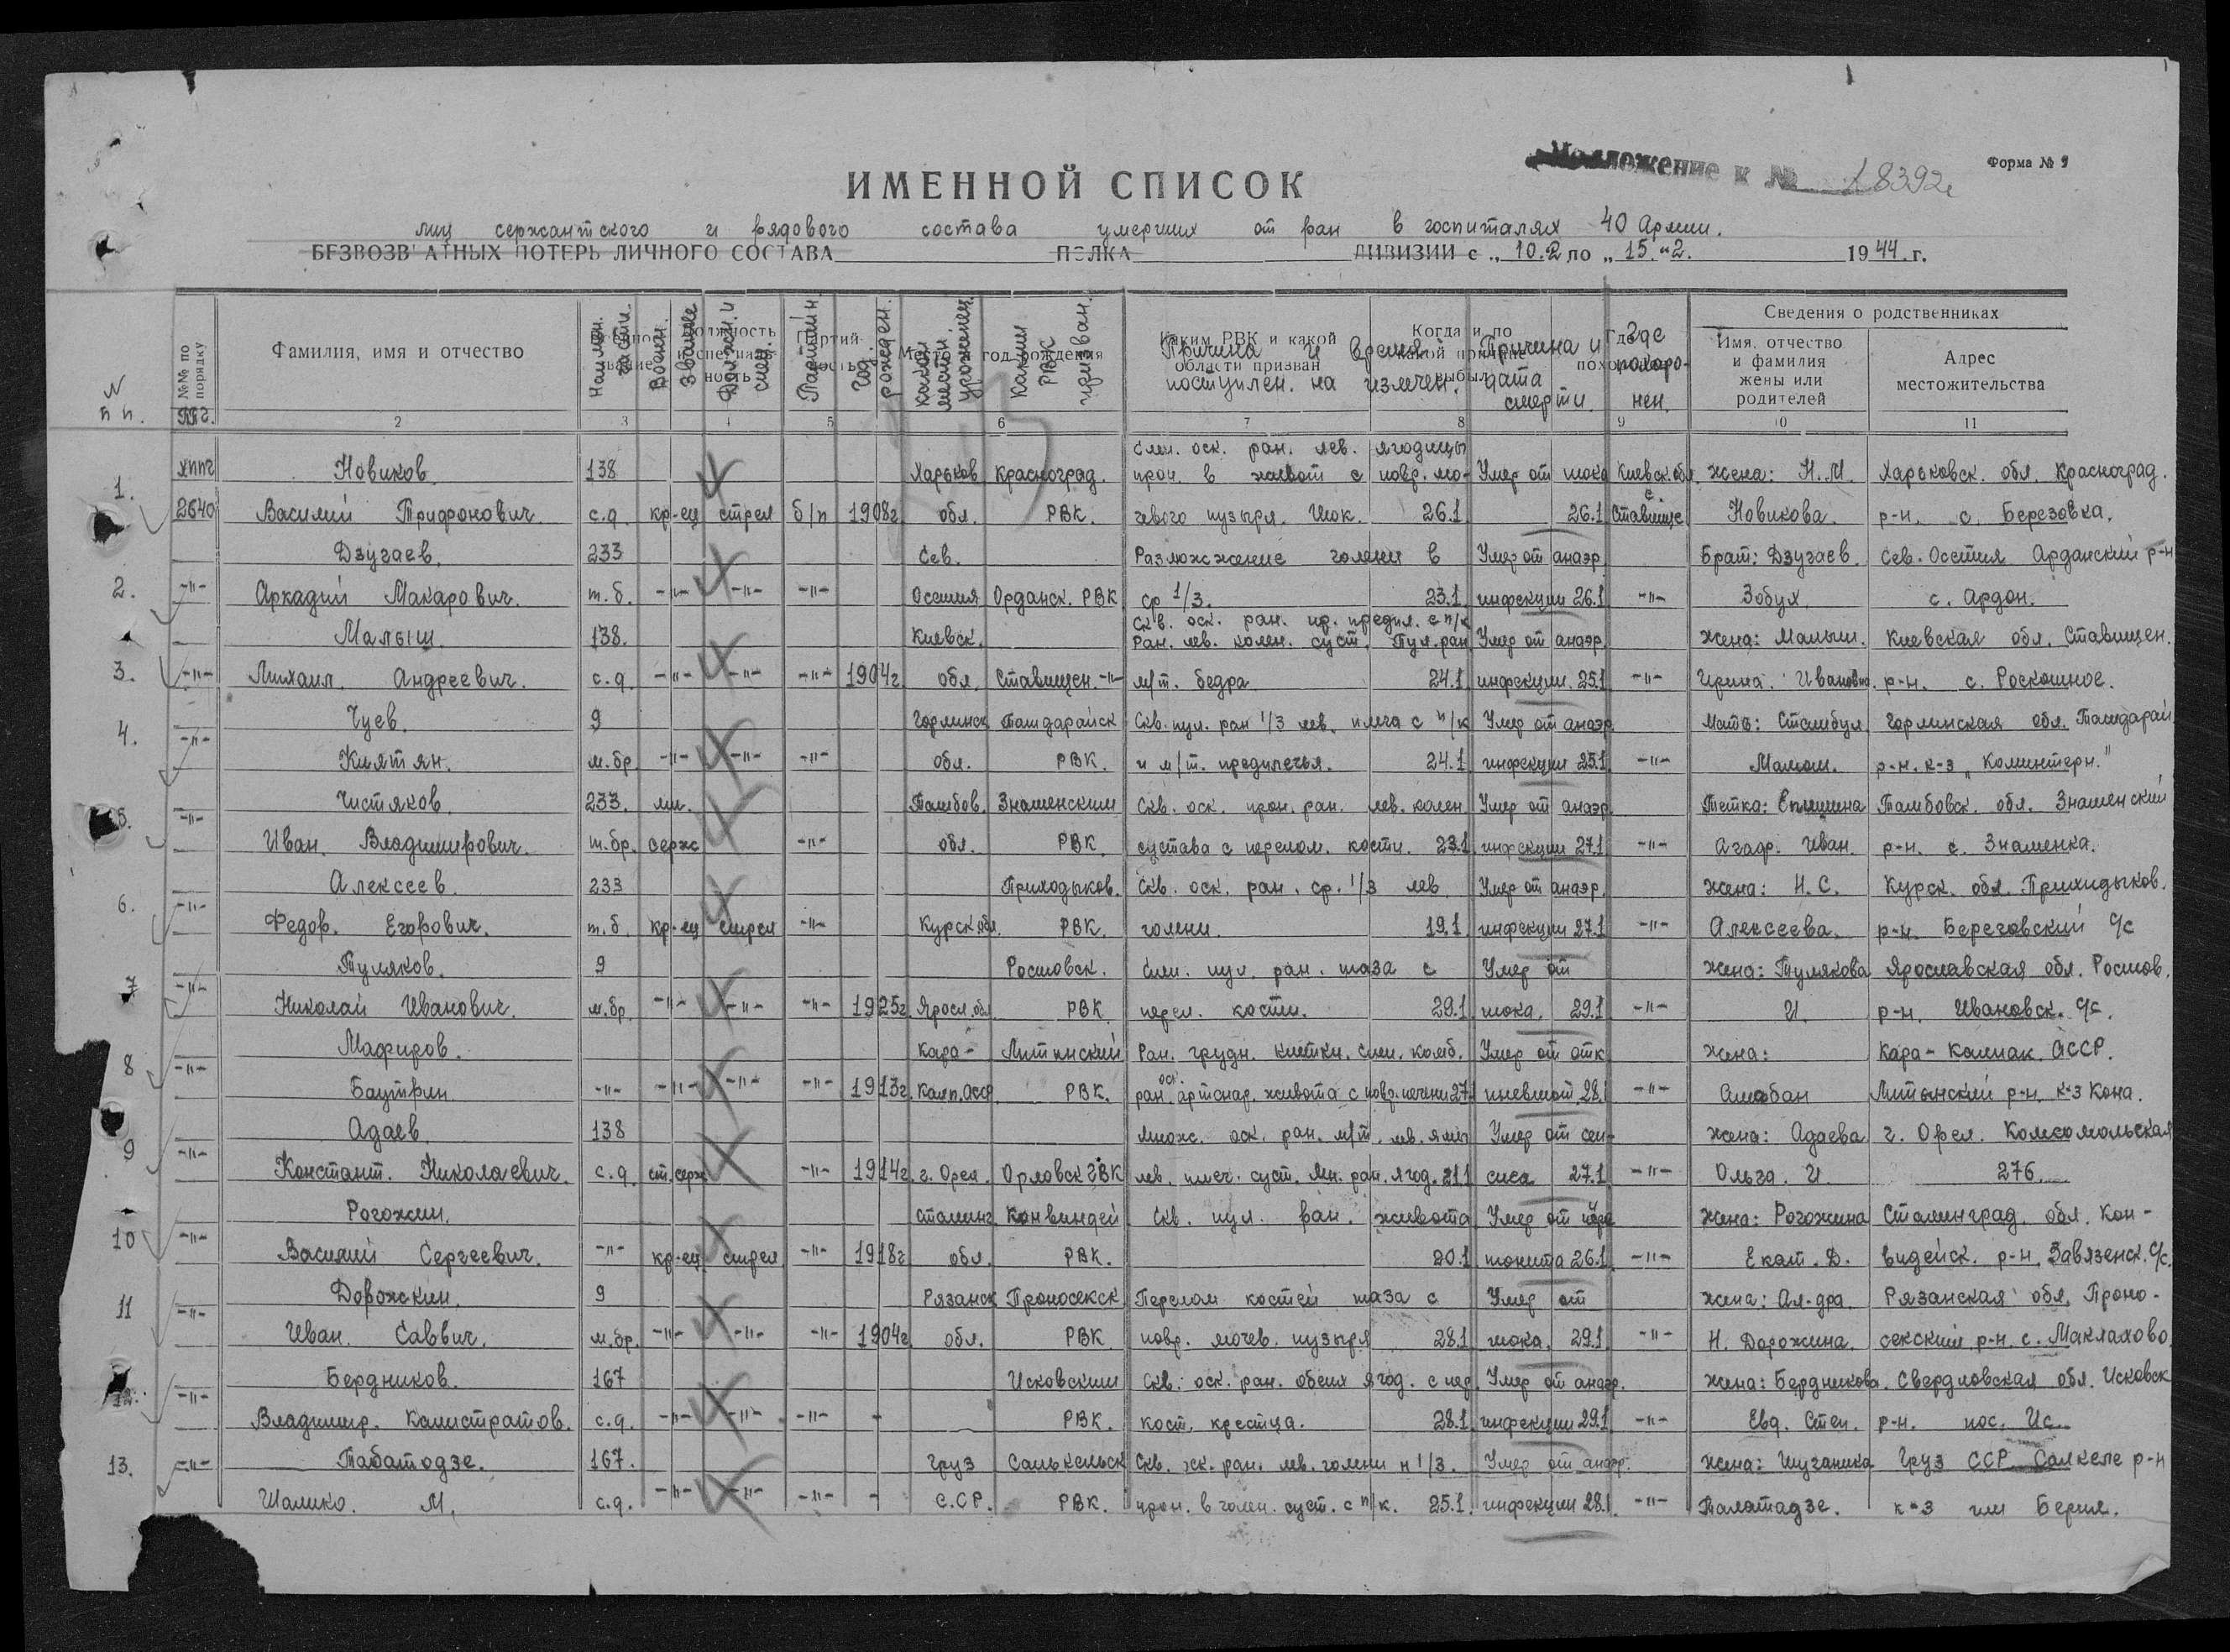 Приложение к № 18392с
Форма № 9
ИМЕННОЙ СПИСОК
лиц сержантского и рядового состава умерших от ран в госпиталях 40 Армии.
БЕЗВОЗВРАТНЫХ ПОТЕРЬ ЛИЧНОГО СОСТАВА ПОЛКА ДИВИЗИИ с „ 10.2 по „ 15.“ 2. 1944. г.
N п п. №№ по порядку Фамилия, имя и отчество Наимен. части. Воен. звание Должн. и спец. Партийн. Год рожден. Какой местн. уроженец Каким РВК призван. Причина и время поступлен. на излечен. Причина и дата смерти. Где похоро- нен. Сведения о родственниках
Имя, отчество и фамилия жены или родителей Адрес местожительства
2 3 4 5 6 7 8 9 10 11
Слеп. оск. ран. лев. ягодицы
1. хппг Новиков. 138 Харьков Красноград. прон. в живот с повр. мо- Умер от шока Киевск. обл. жена: Н.И. Харьковск. обл. Красноград.
2640 Василий Трифонович. с.д. кр-ец стрел б/п 1908г обл. РВК. чевого пузыря. Шок. 26.1 26.1 с. Ставище Новикова. р-н. с. Березовка.
Дзугаев. 233 Сев. Размозжение голени в Умер от анаэр. Брат: Дзугаев. Сев. Осетия Арданский р-н
2. -"- Аркадий Макарович. т.б. -"- -"- -"- Осетия Орданск. РВК ср 1/3. 23.1 инфекции 26.1 -"- Зобул. с. Ардон.
Скв. оск. ран. пр. предпл. с п/к
Малыш. 138. Киевск. Ран. лев. колен. суст. Пул. ран Умер от анаэр. жена: Малыш. Киевская обл. Ставищен.
3. -"- Михаил. Андреевич. с.д. -"- -"- -"- 1904г. обл. Ставищен. -"- м/т. бедра 24.1 инфекции. 25.1 -"- Ирина. Ивановна. р-н. с. Роскошное.
4. Чуев. 9 Горлинск Ташдарайск Скв. пул. ран 1/3 лев. плеча с п/к Умер от анаэр. Мать: Стамбул. Горлинская обл. Ташдарай
-"- Киятян. м.бр. -"- -"- -"- обл. РВК. и м/т. предплечья. 24.1 инфекции 25.1 -"- Мамаш. р-н. к-з „Коминтерн."
5. -"- Чистяков. 233. мл. Тамбов. Знаменский Скв. оск. прон. ран. лев. колен Умер от анаэр. Тетка: Епишина Тамбовск. обл. Знаменский
Иван. Владимирович. т.бр. серж -"- обл. РВК. сустава с перелом. кости. 23.1 инфекции 27.1 -"- Агаф. Иван. р-н. с. Знаменка.
Алексеев. 233 Приходьков. Скв. оск. ран. ср. 1/3 лев Умер от анаэр. жена: Н.С. Курск. обл. Приходьков.
6. -"- Федор. Егорович. т.б. кр-ец стрел -"- Курск. обл. РВК. голени. 19.1 инфекции 27.1 -"- Алексеева. р-н. Береговский с/с
Туляков. 9 Ростовск. Слеп. пул. ран. таза с Умер от жена: Тулякова Ярославская обл. Ростов.
7 -"- Николай Иванович. м.бр. -"- -"- -"- 1925г. Яросл. обл. РВК перел. кости. 29.1 шока. 29.1 -"- И. р-н. Ивановск. с/с.
Мафиров. Кара- Литинский Ран. грудн. клетки. слеп. комб. Умер от отк жена: Кара-Калпак. АССР.
8 -"- Баутрин -"- -"- -"- -"- 1913г. Калп. АССР РВК. ран. оск. арт снар. живота с повр. печени 27.1 пневмот. 28.1 -"- Амабан Литинский р-н. к-з Кона.
Адаев. 138 Множ. оск. ран. м/т. лев. ямы Умер от сеп- жена: Адаева г. Орел. Комсомольская
9 -"- Констант. Николаевич. с.д. ст. серж -"- 1914г. г. Орел. Орловск ГВК лев. плеч. суст. Мн. ран. ягод. 21.1 сиса 27.1 -"- Ольга. И. 276.
Рогожин. Сталинг. Конвиндей Скв. пул. ран. живота Умер от пери жена: Рогожина Сталинград. обл. Кон-
10 -"- Василий Сергеевич. -"- кр-ец стрел -"- 1918г обл. РВК. 20.1 тонита 26.1 -"- Екат. Д. видейск. р-н. Завязенск. с/с.
Дорожкин. 9 Рязанск Проносекск Перелом костей таза с Умер от жена: Ал-дра. Рязанская обл. Проно-
11 -"- Иван. Саввич. м.бр. -"- -"- -"- 1904г. обл. РВК повр. мочев. пузыря 28.1 шока. 29.1 -"- Н. Дорожина. секский р-н. с. Маклахово.
Бердников. 167 Исковский Скв. оск. ран. обеих ягод. с пер. Умер от анаэр. жена: Бердникова. Свердловская обл. Исковск
12. -"- Владимир. Калистратов. с.д. -"- -"- -"- - РВК. кост. крестца. 28.1 инфекции 29.1 -"- Евд. Степ. р-н. пос. Ис.
13. -"- Табатадзе. 167. Груз Салькельск Скв. оск. ран. лев. голени н 1/3. Умер от анаэр. жена: Шузаника Груз ССР Салкеле р-н
Шалико. М. с.д. -"- -"- -"- - С.СР. РВК. прон. в голен. суст. с п/к. 25.1. инфекции 28.1. -"- Талатадзе. к-з им Берия.